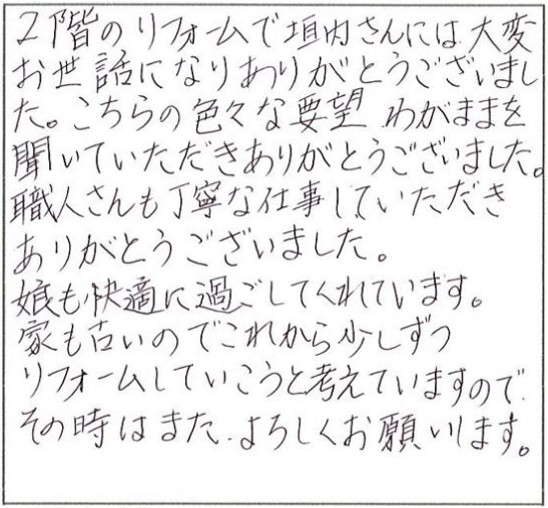 2階のリフォームで垣内さんには大変
お世話になりありがとうございまし
た。こちらの色々な要望 わがままを
聞いていただきありがとうございました。
職人さんも丁寧な仕事していただき
ありがとうございました。
娘も快適に過ごしてくれています。
家も古いのでこれから少しずつ
リフォームしていこうと考えていますので、
その時はまた、よろしくお願いします。